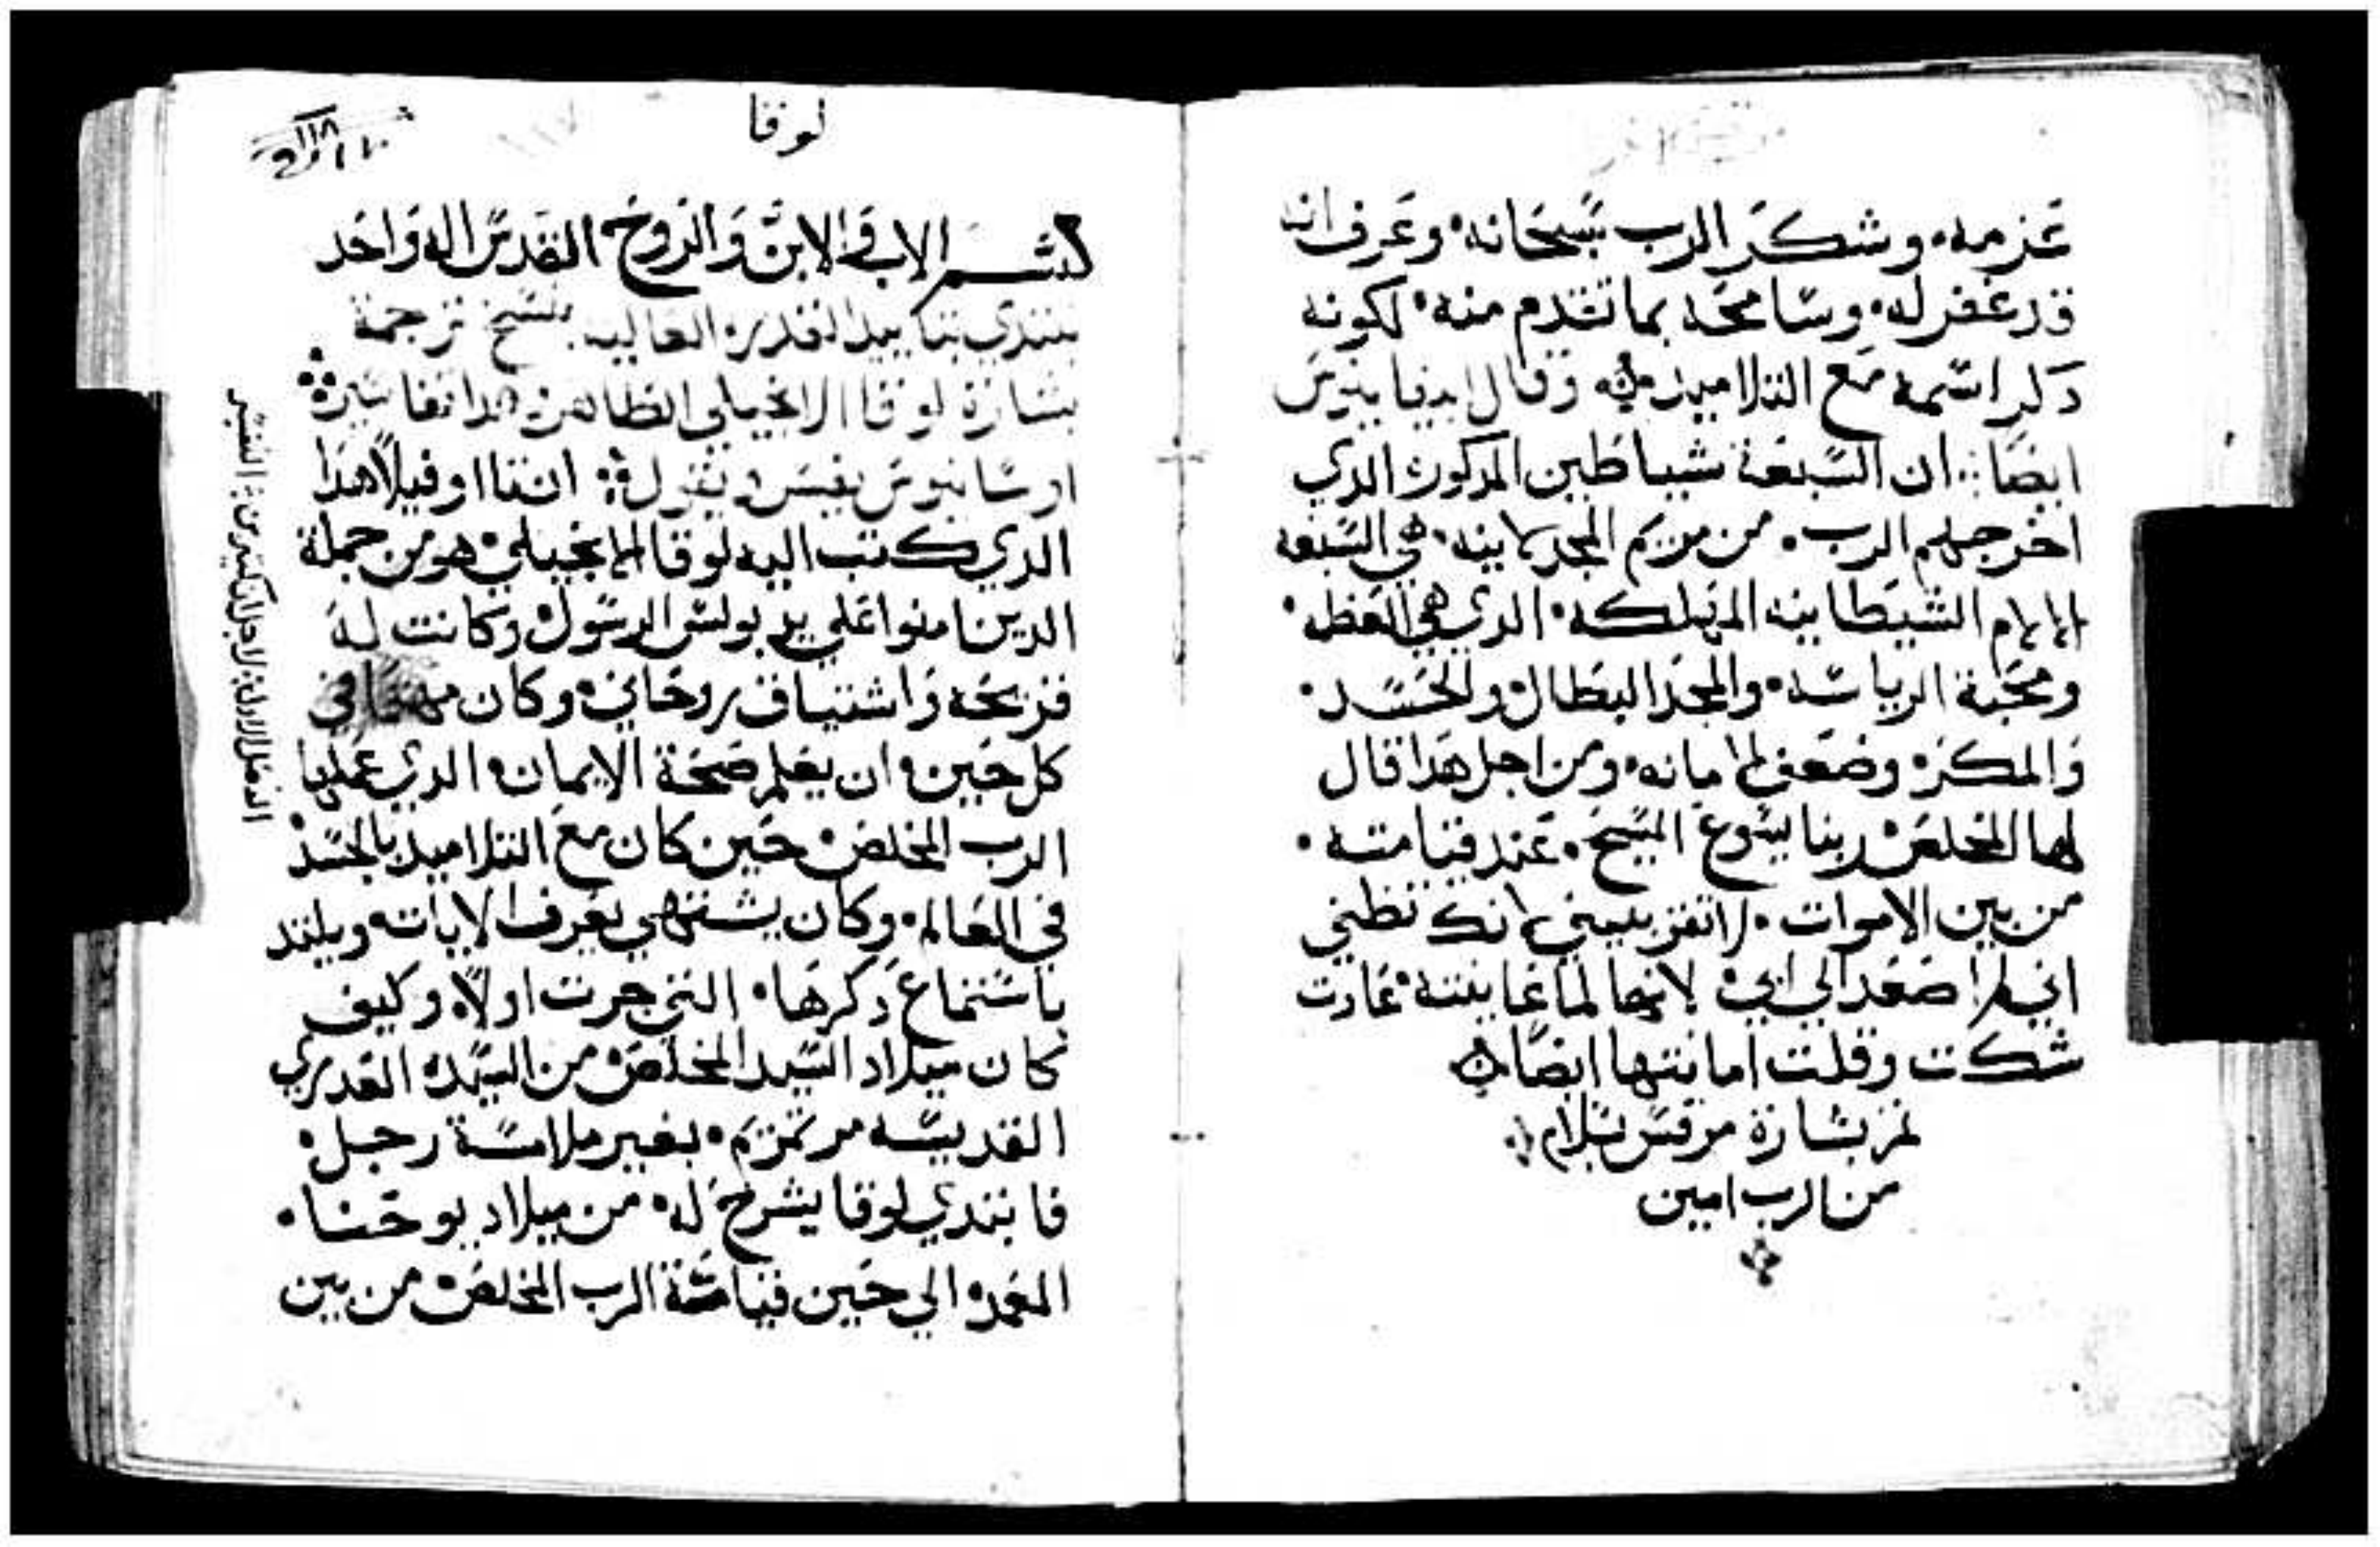 عزمه. وشكر الرب سبحانه. وعرف انه
قد غفر له. وسامحه بما تقدم منه. لكونه
دكر اسمه مع التلاميد وقال
ايضا ان السبعة شياطين المدكوره الدي
اخرجهم الرب. من مريم المجدلانيه. هي السبعه
الالام الشيطانيه المهلكه. الدي هي العظمه.
ومحبة الرياسه. والمجد البطال والحسد.
والمكر. وضعف الامانه. ومن اجل هدا قال
لها المخلص ربنا يسوع المسيح. عند قيامته.
من بين الاموات. لا تقربيني انك تظني
اني لم اصعد الي ابي. لانها لما عاينته عادت
شكت وقلت امانتها ايضا
بشارة مرقس بسلام
من الرب امين
لوقا
بسم الاب والابن والروح القدس اله واحد
نبتدي بتاييد القدره العاليه بنسخ ترجمة
بشارة لوقا الانجيلي الطاهر
يفسر ويقول ان تااوفيلا هدا
الدي كتب اليه لوقا الانجيلي هو من جملة
الدين امنوا علي يد بولس الرسول وكانت له
قريحه واشتياق روحاني. وكان مهتما في
كل حين. ان يعلم صحة الايمان. الدي عملها
الرب المخلص حين كان مع التلاميد بالجسد
في العالم. وكان يشتهي يعرف الاياته ويلتد
باستماع دكرها. التي جرت اولا. وكيف
كان ميلاد السيد المخلص من السيده العدري
القديسه مرتمريم. بغير ملامسة رجل.
فابتدي لوقا يشرح له. من ميلاد يوحنا.
المعمد الي حين قيامة الرب المخلص من بين